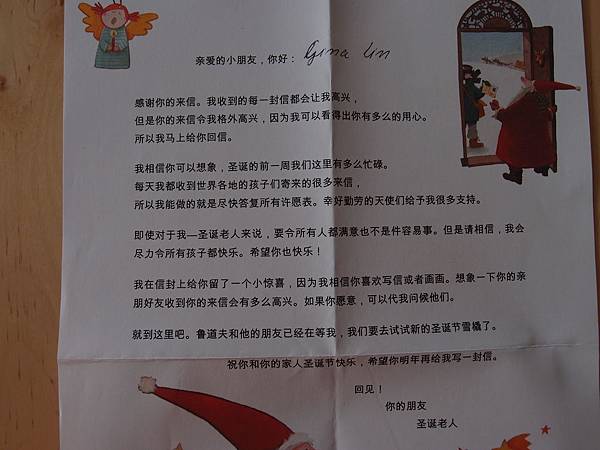 亲爱的小朋友，你好： Gina Lin
感谢你的来信。我收到的每一封信都会让我高兴，
但是你的来信令我格外高兴，因为我可以看得出你有多么的用心。
所以我马上给你回信。
我相信你可以想象，圣诞的前一周我们这里有多么忙碌。
每天我都收到世界各地的孩子们寄来的很多来信，
所以我能做的就是尽快答复所有许愿表。幸好勤劳的天使们给予我很多支持。
即使对于我—圣诞老人来说，要令所有人都满意也不是件容易事。但是请相信，我会
尽力令所有孩子都快乐。希望你也快乐！
我在信封上给你留了一个小惊喜，因为我相信你喜欢写信或者画画。想象一下你的亲
朋好友收到你的来信会有多么高兴。如果你愿意，可以代我问候他们。
就到这里吧。鲁道夫和他的朋友已经在等我，我们要去试试新的圣诞节雪橇了。
祝你和你的家人圣诞节快乐，希望你明年再给我写一封信。
回见！
你的朋友
圣诞老人